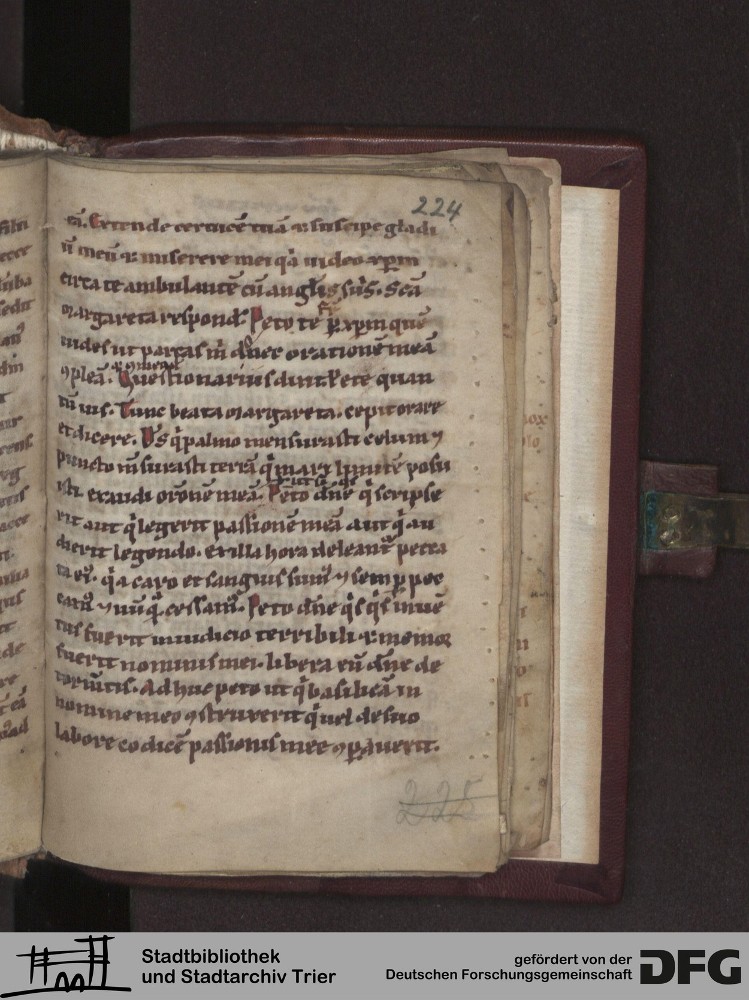 224
cū. Extende ceruicē tuā ⁊ suscipe gladi
ū meū ⁊ miserere mei q̄a uideo xpm
circa te ambulantē cū anglis suis. Scā
margareta respond̄. Peto te fr̄ p xpm quē
uides ut parcas m̄ donec orationē meā
ꝯpleā. Questionarius dixit Pete quan
tū uis. Tunc beata margareta. cepit orare
et dicere. D̄s q̄ palmo mensurasti celum ⁊
puncto m̄surasti terrā q̄ mari limitē posu
isti exaudi orōnē meā. Peto dn̄e q̄ scripse
rit aut q̄ legerit passionē meā aut q̄ au
dierit legendo. ex illa hora deleant̄ pecca
ta ei᾽. q̄a caro et sanguis sum᾽ ⁊ semp pec
cam᾽ ⁊ nūq̄ cessam᾽. Peto dn̄e q̄sq̄s inuē
tus fuerit in iudicio terribili ⁊ memor
fuerit nominis mei. libera eū dn̄e de
tormētis. Adhuc peto ut q̄ basilicā in
nomine meo ꝯstruxerit q̄ uel de suo
labore codicē passionis mee ꝯparauerit.
225
Stadtbibliothek
und Stadtarchiv Trier
gefördert von der
Deutschen Forschungsgemeinschaft
DFG